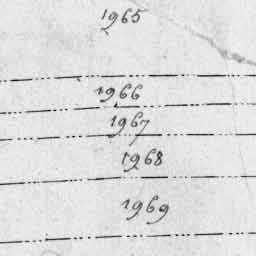 1965
1966
1967
1968
1969